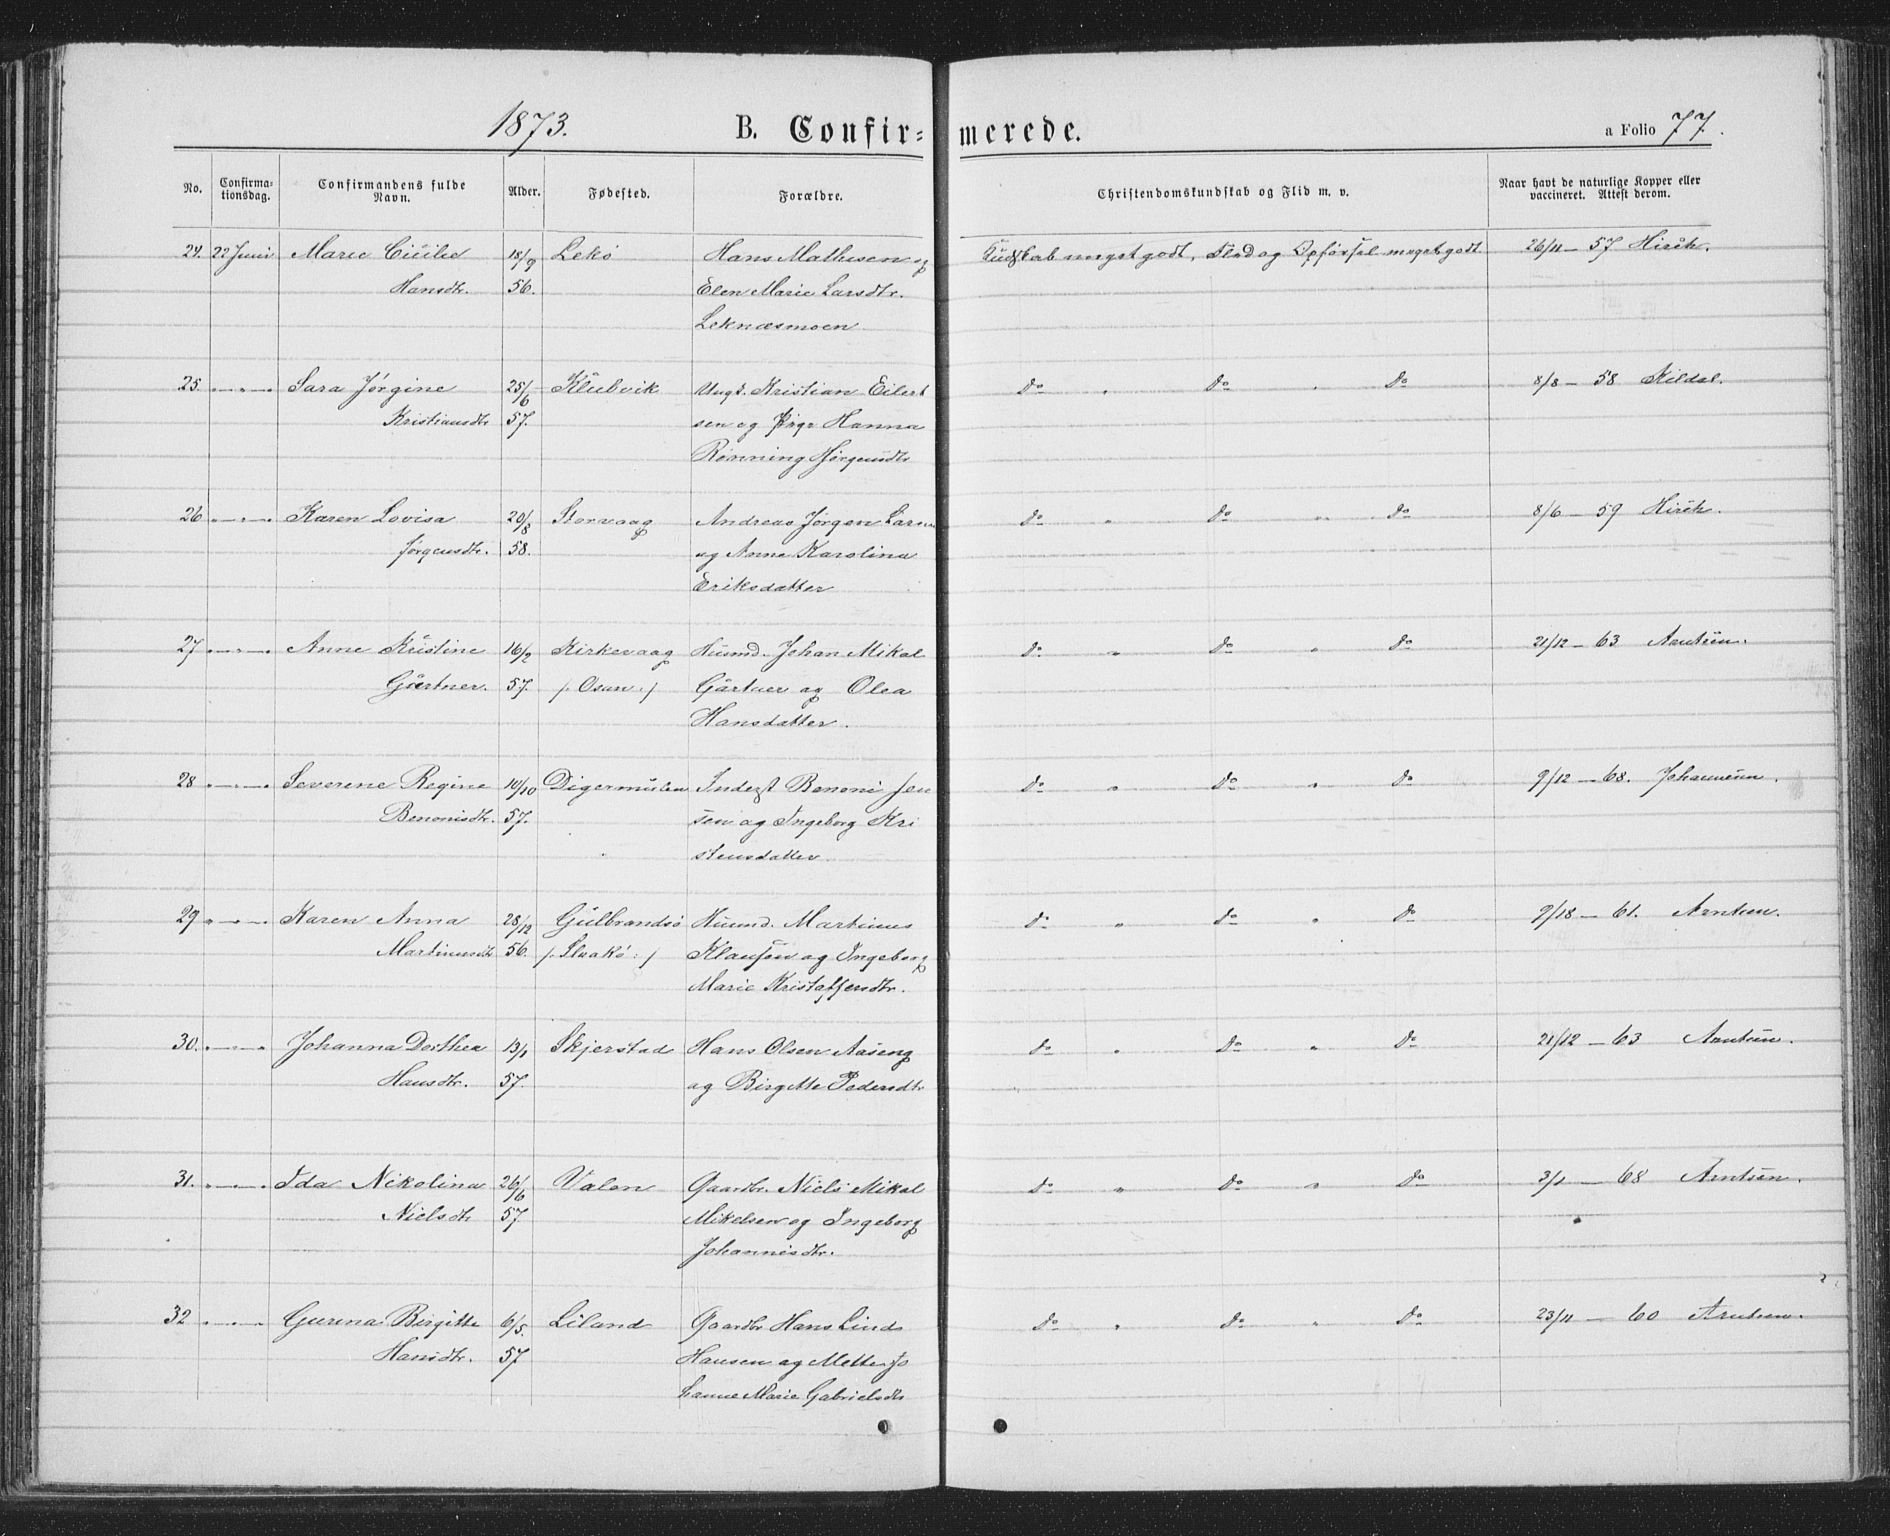 1873. B. Confir= merede. a Folio 77.
No. Confirma= Confirmandens fulde Alder. Fødested. Forældre. Christendomskundskab og Flid m. v. Naar havt de naturlige Kopper eller
tionsdag. Navn. vaccineret. Attest derom.
24. 22 Juni Marie Cicilie 18/9 Lekö Hans Mathisen og Kudskab meget godt, Flid og Opførsel meget godt 26/11 – 57 Hirsch.
Hansdtr. 56. Elen Marie Larsdtr.
Leknæsmoen
25. " — " — " Sara Jørgine 25/6 Klubvik Ungk. Kristian Eilert do " do " do 8/8 – 58 Kildal.
Kristiansdtr 57. sen og Pige Hanna
Rønning Jörgensdtr
26 " — " — " Karen Lovisa 20/8 Storvaag Andreas Jørgen Larsen do " do " do 8/6 – 59 Hirsch.
Jørgensdtr. 58. og Anne Karolina
Eriksdatter
27 " — " — " Anne Kristine 16/2 Kirkevaag Huusmd. Johan Mikal do " do " do 21/12 – 63 Arntsen.
Gärtner. 57. /: Osan :/ Gärtner og Olea
Hansdatter.
28 " — " — " Severine Regine 10/10 Digermulen Inderst Benoni Jen do " do " do 9/12 – 68. Johannesen.
Benonisdtr. 57. sen og Ingeborg Kri
stensdatter
29 " — " — " Karen Anna 28/12 Gulbrandsö Huusmd. Martinus do " do " do 9/18 – 61. Arntsen.
Martinusdtr 56. Klausen og Ingeborg
Marie Kristoffersdtr.
30. " — " — " Johanna Dorthea 13/1 Skjerstad Hans Olsen Aaseng do " do " do 21/12 – 63 Arntsen.
Hansdtr. 57. og Birgitte Pedersdtr
31. " — " — " Ida Nikolina 26/6 Valen Gaardbr. Niels Mikal do " do " do 3/1 – 68 Arntsen.
Nielsdtr 57 Mikelsen og Ingeborg
Johannisdtr.
32 " — " — " Gurina Birgitte 6/5. Liland Gaardbr Hans Lind do " do " do 23/11 – 60 Arntsen.
Hansdtr. 57 Hansen og Mette Jo
hanne Marie Gabrielsdtr